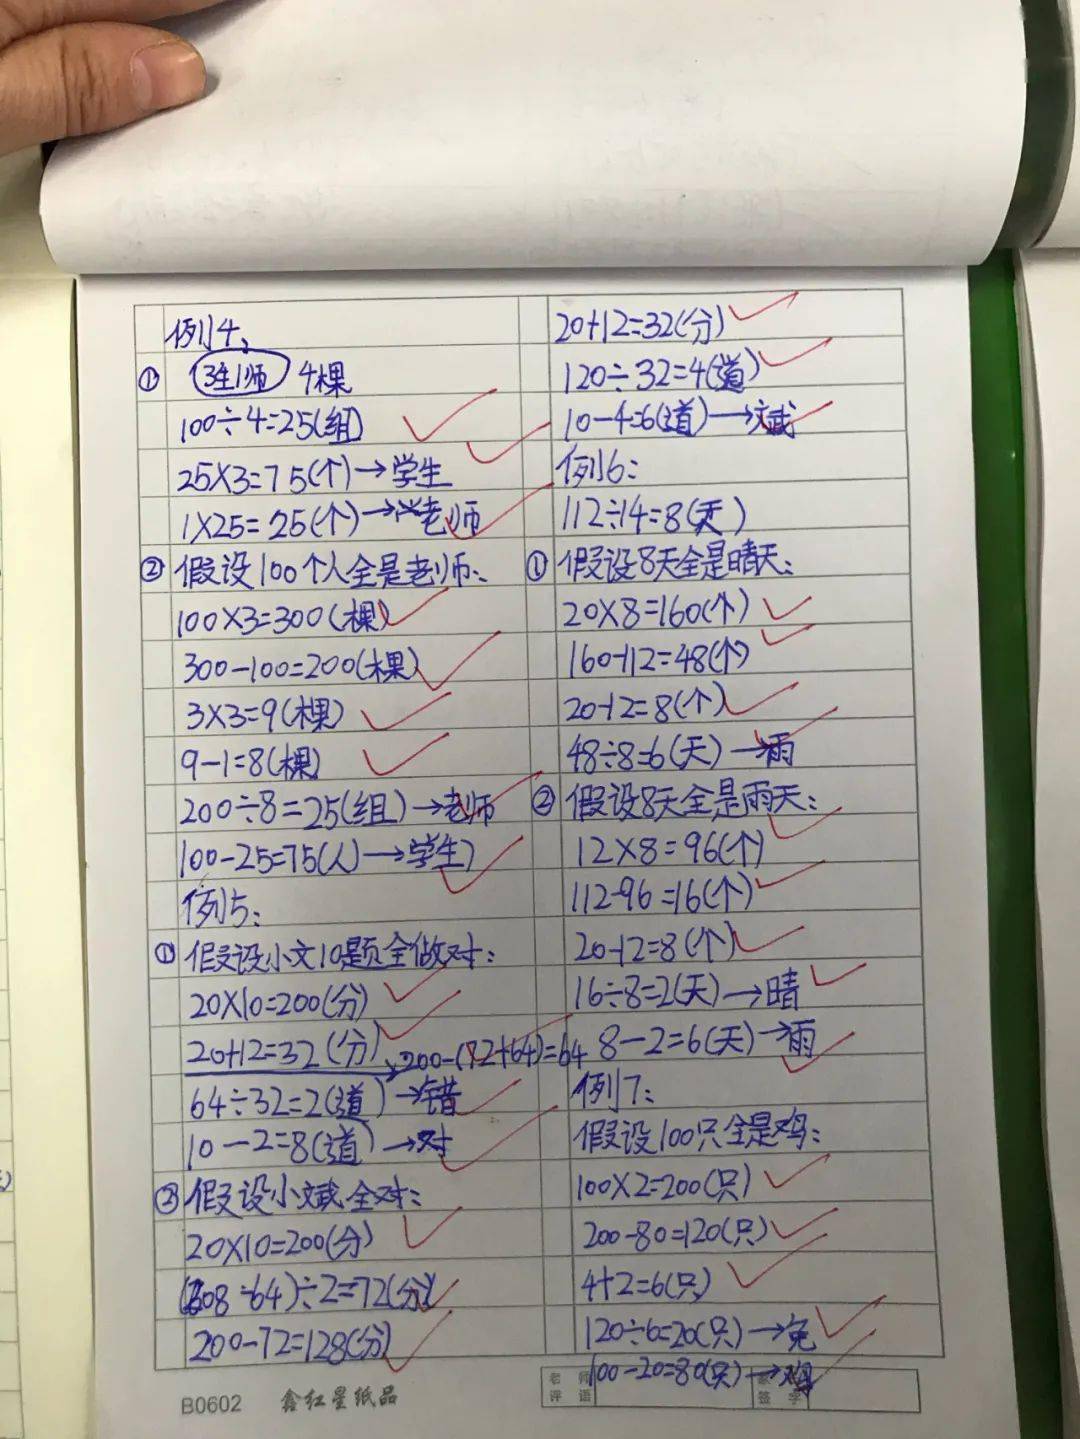 例4、
① 3生1师 4棵
100÷4=25(组)
25×3=75(个)→学生
1×25=25(个)→老师
② 假设100个人全是老师:
100×3=300(棵)
300-100=200(棵)
3×3=9(棵)
9-1=8(棵)
200÷8=25(组)→老师
100-25=75(人)→学生
例5:
① 假设小文10题全做对:
20×10=200(分)
20+12=32(分) 200-(72+64)=64
64÷32=2(道)→错
10-2=8(道)→对
② 假设小斌全对:
20×10=200(分)
(208-64)÷2=72(分)
200-72=128(分)
20+12=32(分)
120÷32=4(道)
10-4=6(道)→斌
例6:
112÷14=8(天)
① 假设8天全是晴天:
20×8=160(个)
160-112=48(个)
20-12=8(个)
48÷8=6(天)→雨
② 假设8天全是雨天:
12×8=96(个)
112-96=16(个)
20-12=8(个)
16÷8=2(天)→晴
8-2=6(天)→雨
例7:
假设100只全是鸡:
100×2=200(只)
200-80=120(只)
4+2=6(只)
120÷6=20(只)→兔
100-20=80(只)→鸡
B0602 鑫红星纸品
老师评语
签字